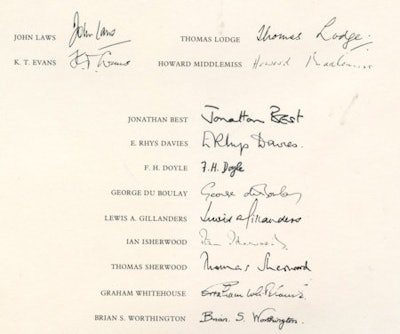 JOHN LAWS John Laws THOMAS LODGE Thomas Lodge.
K. T. EVANS K T Evans HOWARD MIDDLEMISS Howard Middlemiss
JONATHAN BEST Jonathan BEST
E. RHYS DAVIES E Rhys Davies.
F. H. DOYLE F.H. Doyle
GEORGE DU BOULAY George du Boulay
LEWIS A. GILLANDERS Lewis A Gillanders
IAN ISHERWOOD Ian Isherwood
THOMAS SHERWOOD Thomas Sherwood
GRAHAM WHITEHOUSE Graham Whitehouse
BRIAN S. WORTHINGTON Brian. S. Worthington.